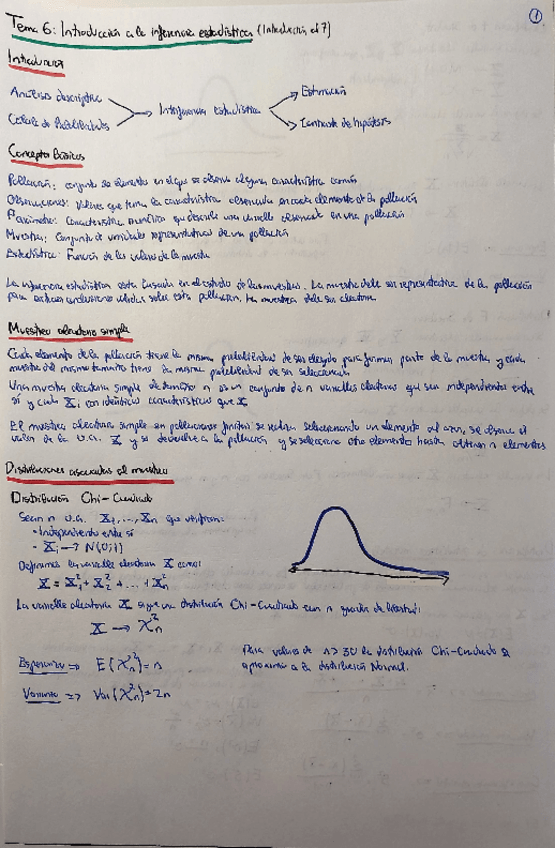 ①
Tema 6: Introducción a la inferencia estadística (Introducción al 7)
Introducción
Análisis descriptivo
Cálculo de Probabilidades
Inferencia estadística
Estimación
Contraste de hipótesis
Conceptos Básicos
Población: conjunto de elementos en el que se observa alguna característica común
Observaciones: Valores que toma la característica observada en cada elemento de la población
Parámetro: Característica numérica que describe una variable observada en una población
Muestra: Conjunto de unidades representativas de una población
Estadístico: Función de los valores de la muestra
La inferencia estadística está basada en el estudio de las muestras. La muestra debe ser representativa de la población
para extraer conclusiones válidas sobre esta población. La muestra debe ser aleatoria.
Muestreo aleatorio simple
Cada elemento de la población tiene la misma probabilidad de ser elegido para formar parte de la muestra, y cada
muestra del mismo tamaño tiene la misma probabilidad de ser seleccionada
Una muestra aleatoria simple de tamaño n es un conjunto de n variables aleatorias que son independientes entre
sí y cada Xi con idénticas características que X
El muestreo aleatorio simple en poblaciones finitas se realiza seleccionando un elemento al azar, se observa el
valor de la v.a. X y se devuelve a la población y se selecciona otro elemento hasta obtener n elementos
Distribuciones asociadas al muestreo
Distribución Chi-Cuadrado
Sean n v.a. X1, ..., Xn que verifican:
- Independientes entre sí
- Xi → N(0;1)
Definimos la variable aleatoria X como:
X = X₁² + X₂² + ... + Xn²
La variable aleatoria X sigue una distribución Chi-Cuadrado con n grados de libertad:
X → χ²n
Esperanza => E(χ²n) = n
Varianza => Var(χ²n) = 2n
Para valores de n > 30 la distribución Chi-Cuadrado se
aproxima a la distribución Normal.